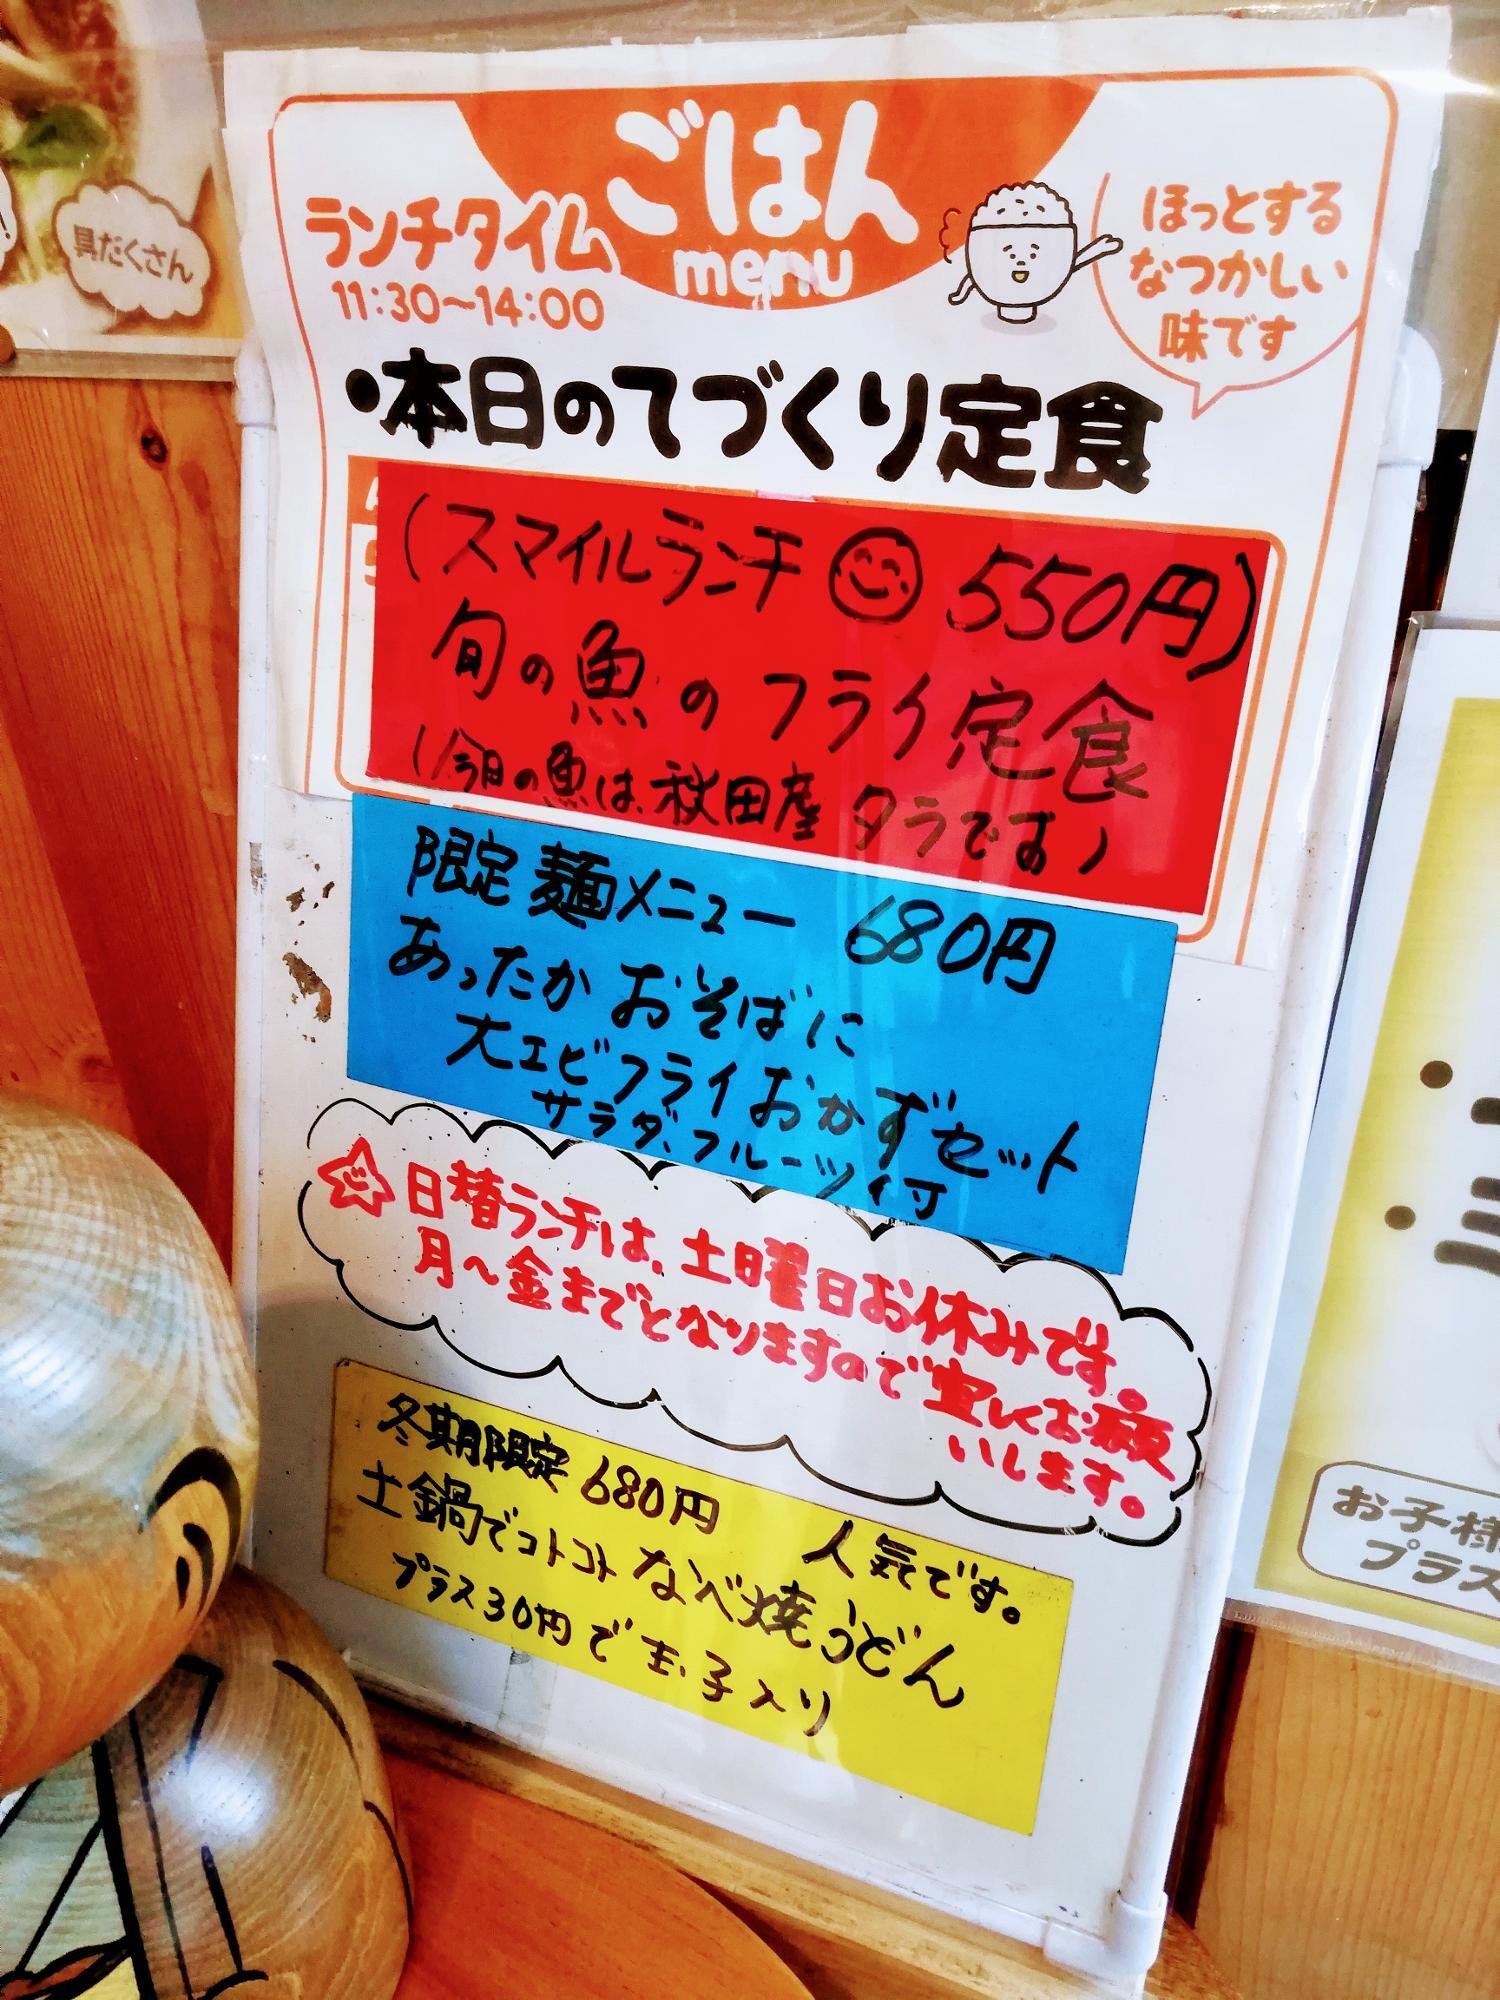 具だくさん
ごはん
menu
ランチタイム
11:30〜14:00
ほっとする
なつかしい
味です
・本日のてづくり定食
(スマイルランチ 550円)
旬の魚のフライ定食
(今日の魚は、秋田産 タラです)
限定 麺メニュー 680円
あったか おそばに
大エビフライおかずセット
サラダ、フルーツ付
日替ランチは、土曜日お休みです。
月〜金までとなりますので宜しくお願
いします。
冬期限定 680円 人気です。
土鍋でコトコト なべ焼うどん
プラス30円で玉子入り
お子様
プラス